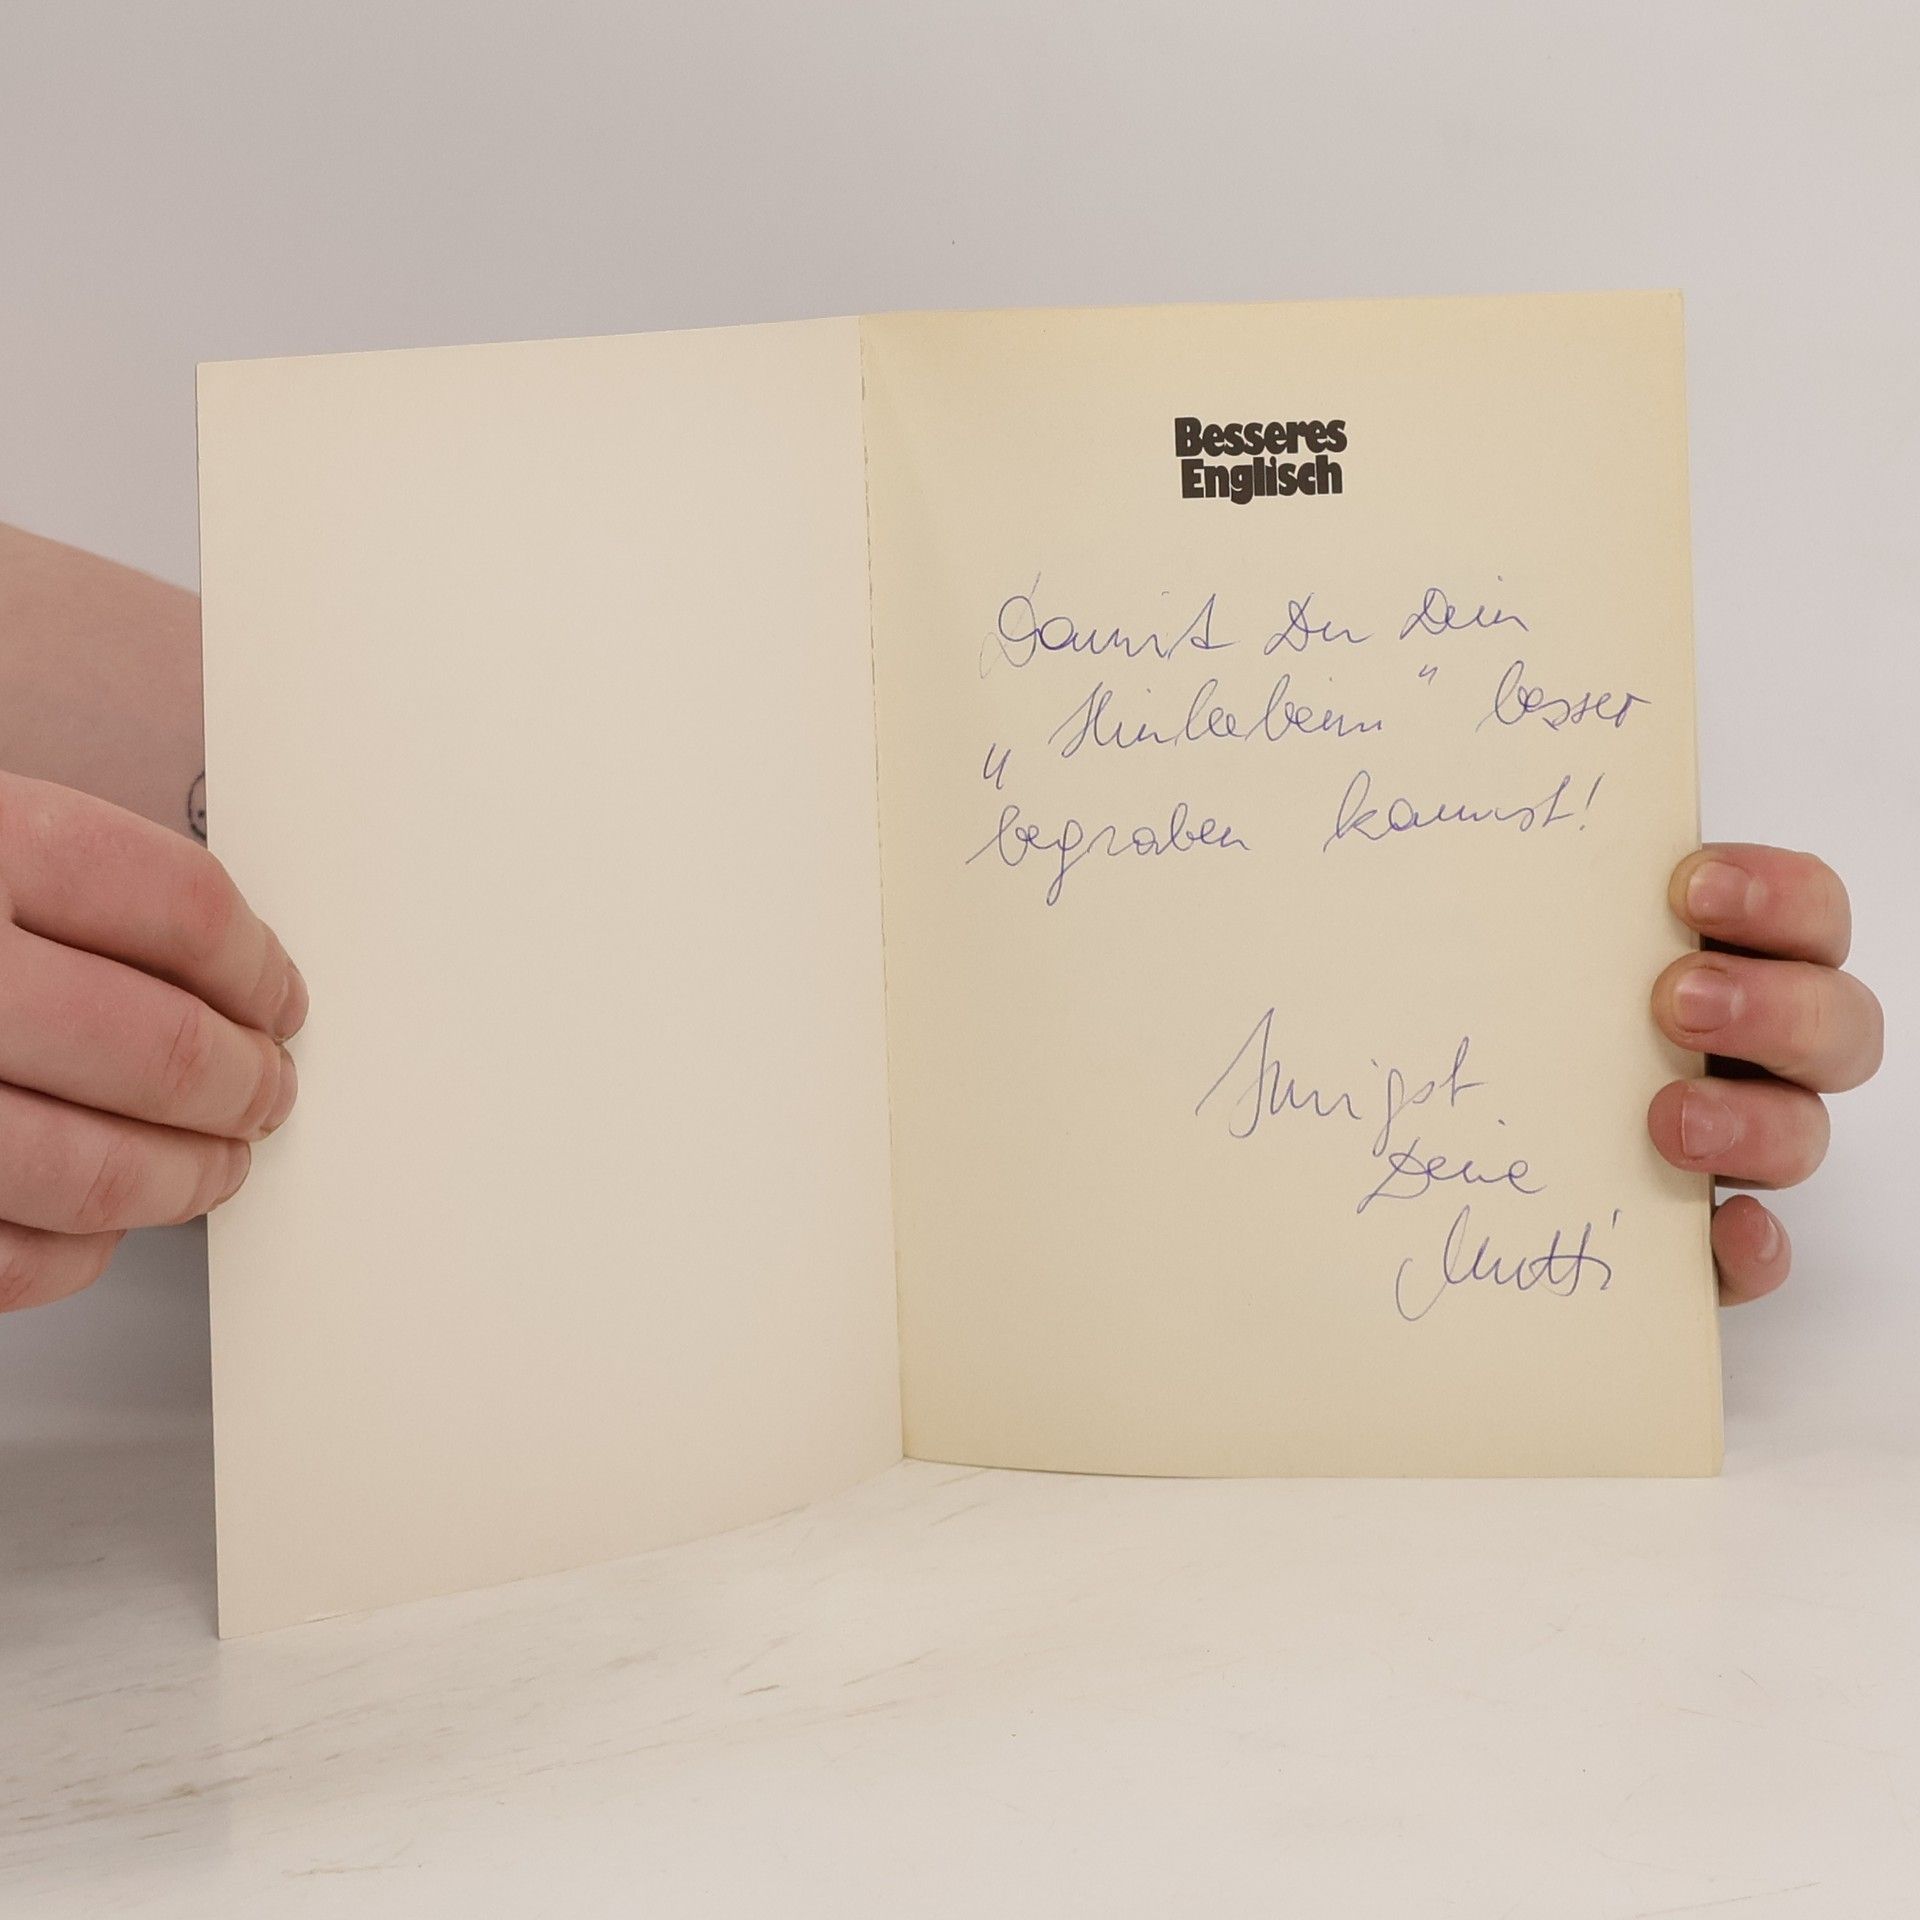 Besseres
Englisch
Damit Du Dein
„ " besser
begraben kannst!
Innigst
Deine
Mutti